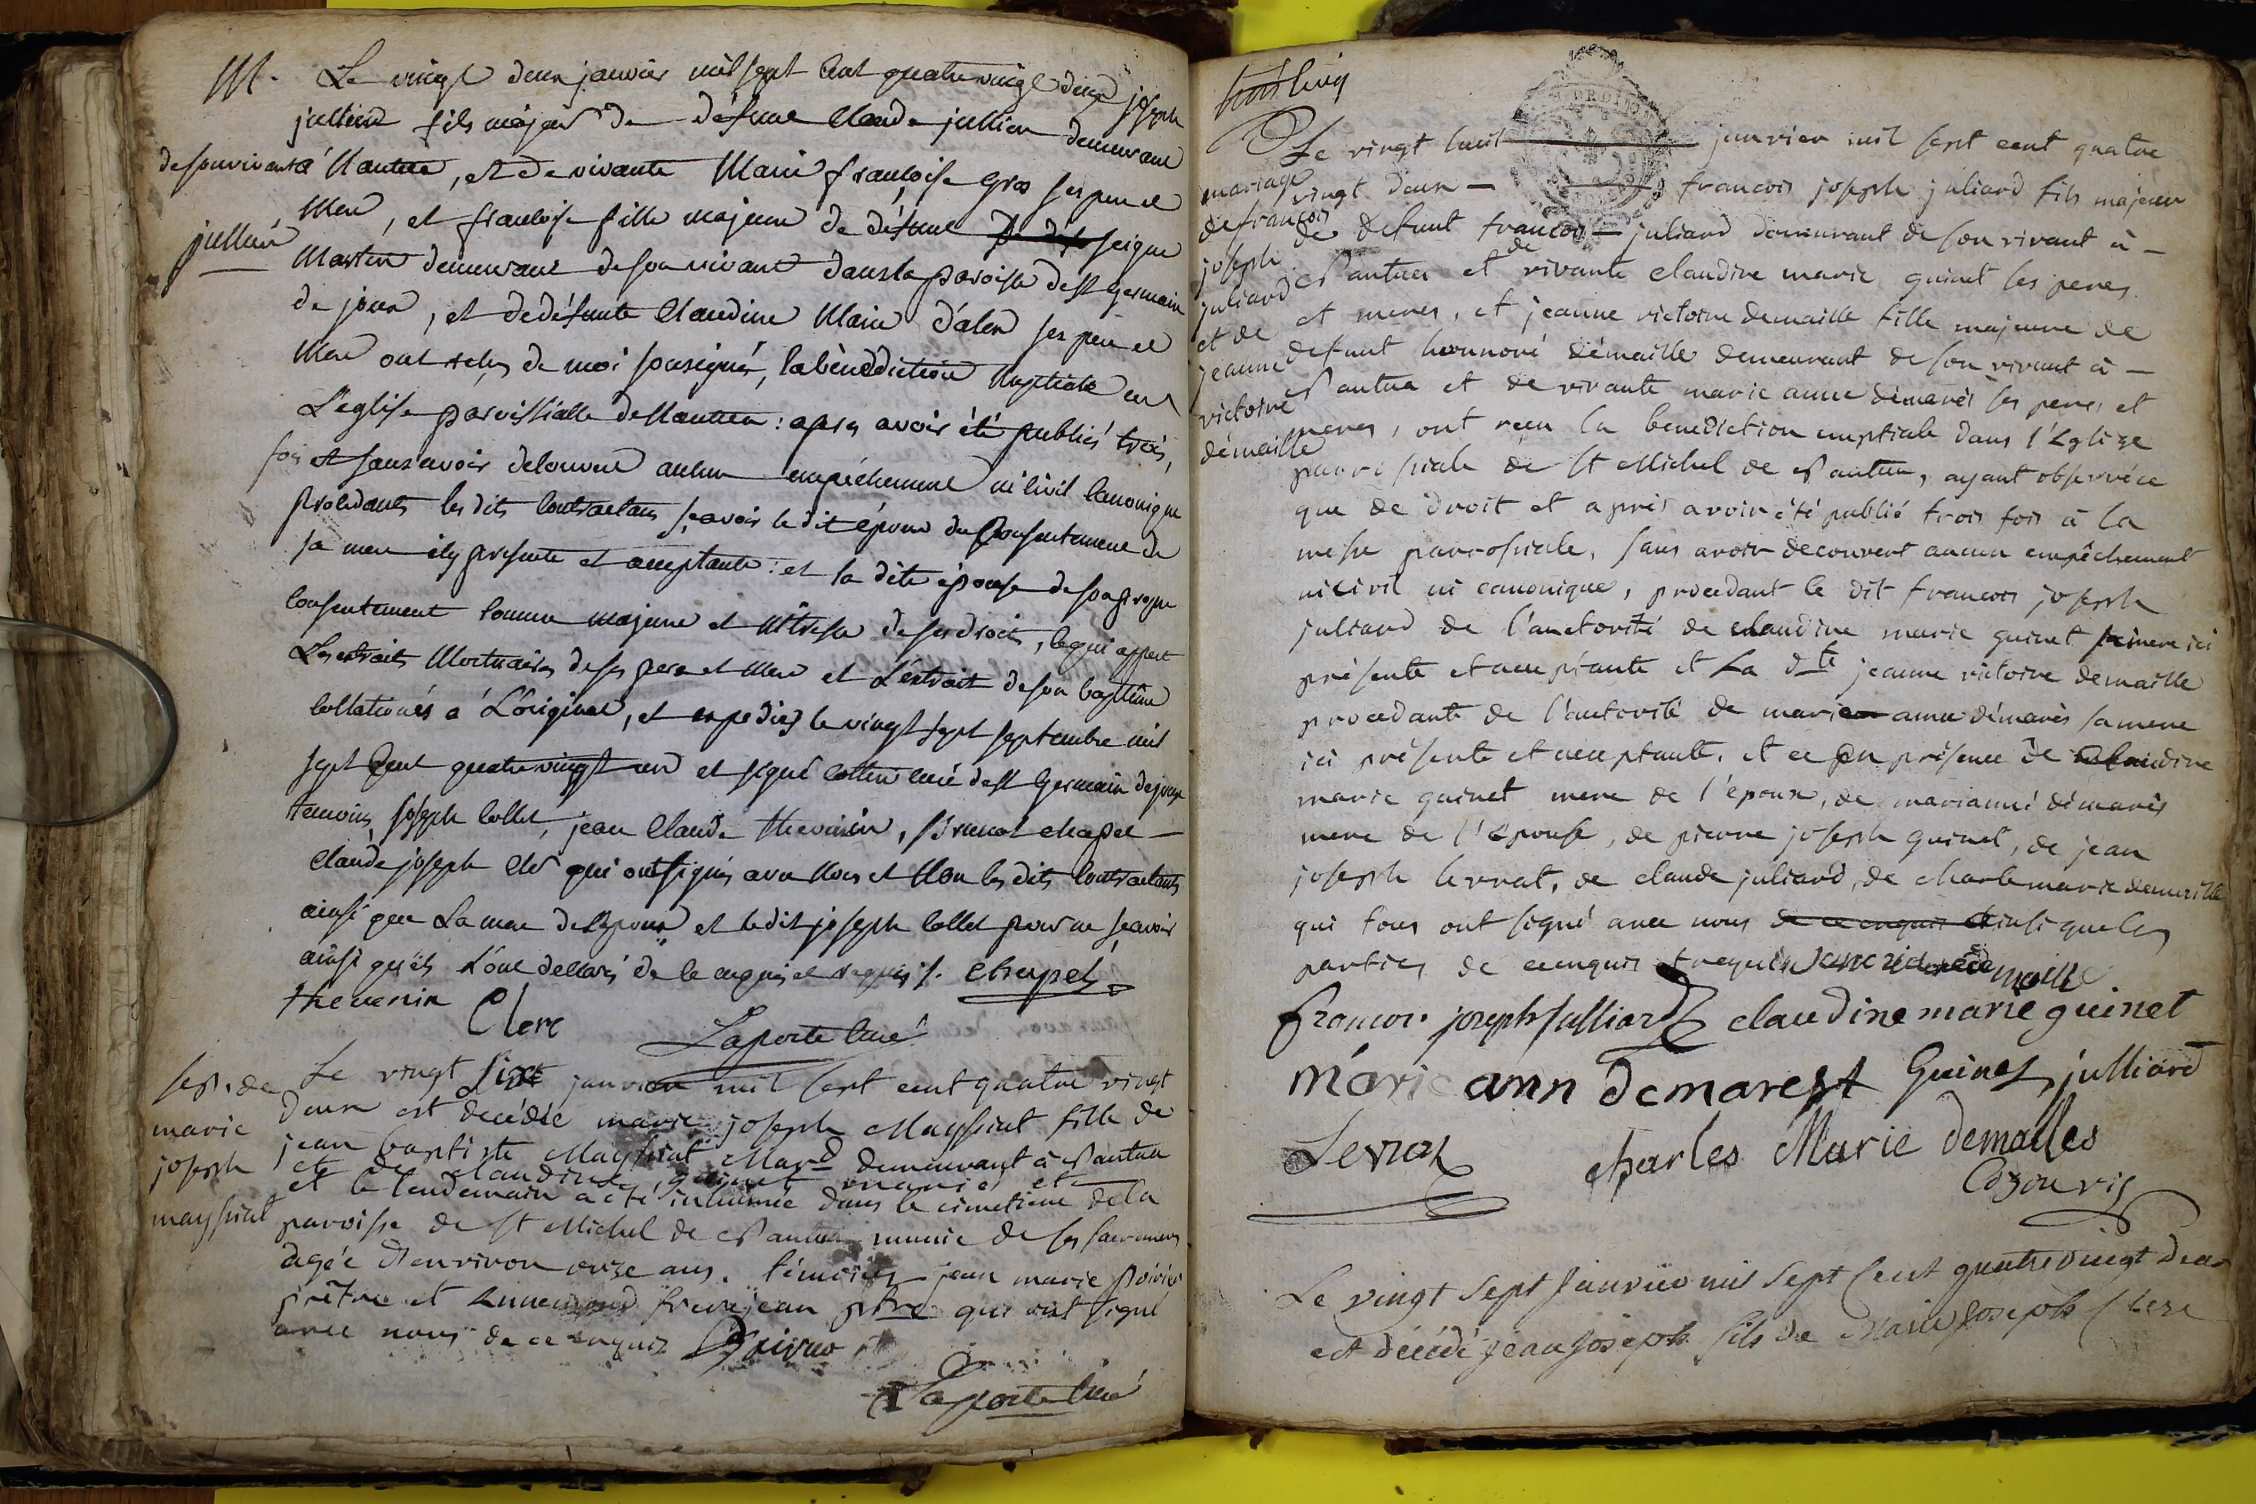 M.
Le vingt deux janvier mil sept cent quatre vingt deux joseph
jullien fils majeur de défunt Claude jullien demeurant
de son vivant à Nantua, et de vivante Marie françoise Gros ses pere et
jullien
Mere, et françoise fille majeure de défunt seigne
Martin demeurant de son vivant dans la paroisse de St Germain
de joux, et de défunte Claudine Marie d'alex ses père et
Mere ont reçu de moi soussigné, la bénédiction Nuptiale en
L'eglise paroissialle de Nantua : apres avoir été publiés trois
fois et sans avoir decouvert aucun empéchement ni civil Canonique
procedants les dits Contractans sçavoir le dit époux du Consentement de
sa mere icy presente et acceptante : et la dite épouse de son propre
consentement comme majeure et Mtresse de ses droits, ce qui appert
Les extraits Mortuaires de ses pere et Mere et L'extrait de son baptême
collationés à L'original, et expediés le vingt sept septembre mil
sept Cent quatre vingt un et signé Cottin curé de St Germain de joux
temoins, joseph Collet, jean Claude thevenin, chapel
Claude joseph Cler qui ont signés avec Nous et Non les dits Contractants
ainsi que La mere de L'epoux et le dit joseph Collet pour ne sçavoir
ainsi qu'ils L'ont declaré de ce enquis et requis /. Chapel
thevenin Clerc
Laporte Curé
sep. de
marie
joseph
mayssiat
Le vingt six janvier mil sept cent quatre vingt
deux est decédée marie joseph Mayssiat fille de
jean baptiste Mayssiat Mard demeurant à Nantua
et de Claudine guinet mariés et
et le lendemain a été inhumée dans le cimetiere de la
paroisse de St Michel de Nantua munie de ses sacremens
agée d'environ onze ans. témoins jean marie poirier
prêtre et frerejean ptre qui ont signé
avec nous de ce enquis
Laporte Curé
mariage
de francois
joseph
juliard
et de
jeanne
victoire
démaille
Le vingt huit janvier mil sept cent quatre
vingt deux francois joseph juliard fils majeur
de defunt francois juliard demeurant de son vivant à
Nantua et de vivante claudine marie guinet ses peres
et meres, et jeanne victoire demaille fille majeure de
defunt honnoré démaille demeurant de son vivant à
Nantua et de vivante marie anne démarès ses peres et
meres, ont reçu la benediction nuptiale dans l'Eglize
parroissiale de St Michel de Nantua, ayant observé ce
que de droit et après avoir été publié trois fois à la
messe parrossiale, sans avoir decouvert aucun empêchement
ni civil ni canonique, procedant le dit francois joseph
juliard de l'auctorité de claudine marie guinet sa mere ici
présente et acceptante et La dte jeanne victoire demaille
procedante de l'autorité de marie anne démarès sa mere
ici présente et acceptante. et ce en présence de claudine
marie guinet mere de l'époux, de marianne démarès
mere de l'Epouse, de pierre joseph guinet, de jean
joseph levrat, de claude juliard, de charle marie demaille
qui tous ont signé avec nous de ce enquis ainsi que les
parties de ce enquis
francois joseph julliard claudine marie guinet
marie ann demarest Guinet julliard
Levrat
charles Marie demailles
Le vingt sept Janvier mil sept Cent quatre vingt deux
est décédé jean Joseph fils de Marie Joseph Clerc